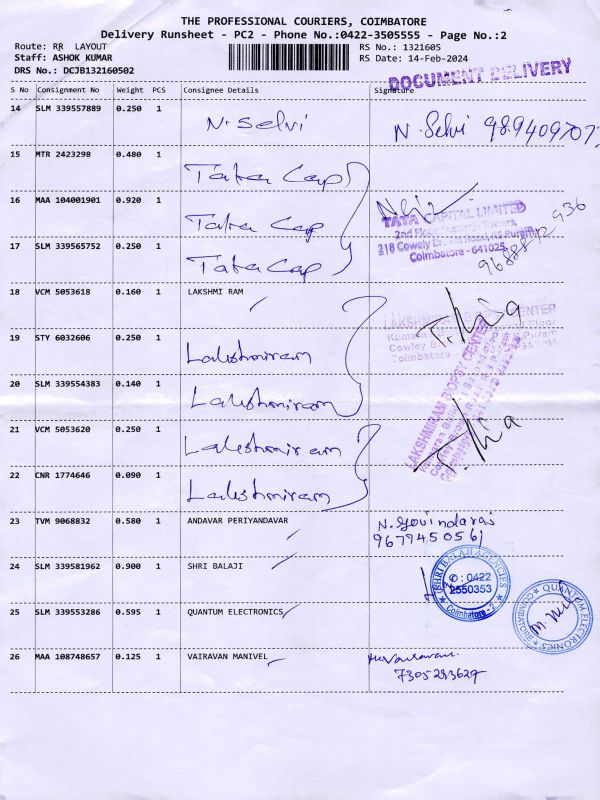 THE PROFESSIONAL COURIERS, COIMBATORE
Delivery Runsheet - PC2 - Phone No.:0422-3505555 - Page No.:2
Route: RR LAYOUT
RS No.: 1321605
Staff: ASHOK KUMAR
RS Date: 14-Feb-2024
DRS No.: DCJB132160502
DOCUMENT DELIVERY
S No Consignment No Weight PCS Consignee Details Signature
14 SLM 339557889 0.250 1 N. Selvi N. Selvi
15 MTR 2423298 0.480 1 Tata Cap
16 MAA 104001901 0.920 1 Tata Cap
TATA CAPITAL LIMITED
Coimbatore - 641025
17 SLM 339565752 0.250 1 Tata Cap
18 VCM 5053618 0.160 1 LAKSHMI RAM
19 STY 6032606 0.250 1 Lakshmiram
20 SLM 339554383 0.140 1 Lakshmiram
21 VCM 5053620 0.250 1 Lakshmiram
22 CNR 1774646 0.090 1 Lakshmiram
LAKSHMIRAM BIOPSY CENTER
23 TVM 9068832 0.580 1 ANDAVAR PERIYANDAVAR N. Govindaraj
9677450561
24 SLM 339581962 0.900 1 SHRI BALAJI
SHRI BALAJI AGENCIES
✆ : 0422
2550353
Coimbatore - 2
25 SLM 339553286 0.595 1 QUANTUM ELECTRONICS
QUANTUM ELECTRONICS
COIMBATORE
26 MAA 108748657 0.125 1 VAIRAVAN MANIVEL
7305293629